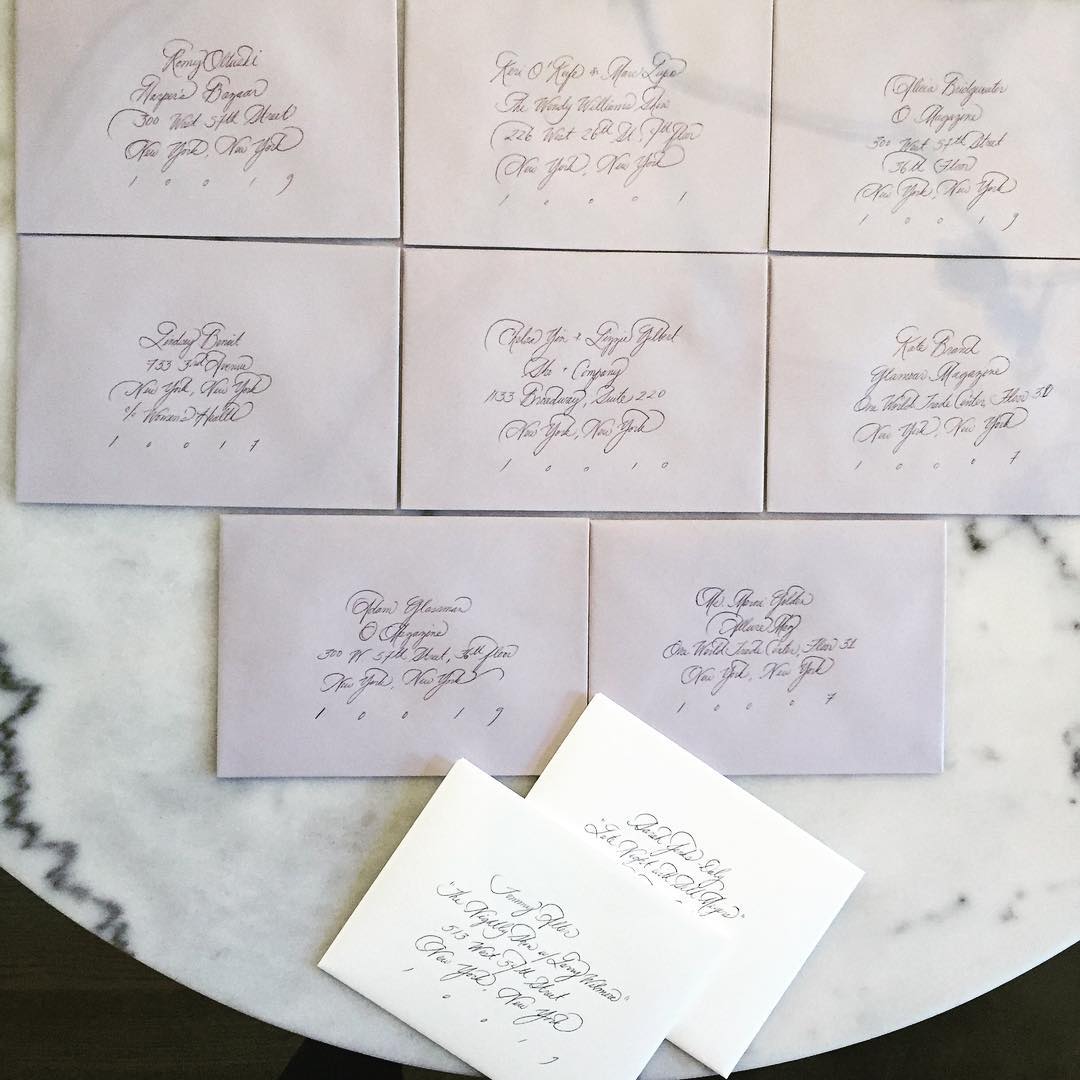 Romy Oltuski
Harper's Bazaar
300 West 57th Street
New York, New York
1 0 0 1 9
Keri O'Kefe + Marc
The Wendy Williams Show
226 West 26th St, 7th floor
New York, New York
1 0 0 0 1
Alicia Bridgewater
O Magazine
300 West 57th Street
36th Floor
New York, New York
1 0 0 1 9
Lindsay Benoit
733 3rd Avenue
New York, New York
c/o Women's Health
1 0 0 1 7
Yin + Lizzie Gilbert
+ Company
1133 Broadway, Suite 220
New York, New York
1 0 0 1 0
Kate Brand
Glamour Magazine
One World Trade Center, Floor
New York, New York
1 0 0 0 7
Adam Glassman
O Magazine
300 W 57th Street, 36th floor
New York, New York
1 0 0 1 9
Ms.
Allure Mag
One World Trade Center, Floor 31
New York, New York
1 0 0 0 7
Sarah
"Late Night with Seth Meyers"
Tommy
"The Nightly Show w/ Larry Wilmore"
513 West 57th Street
New York, New York
1 0 0 1 9